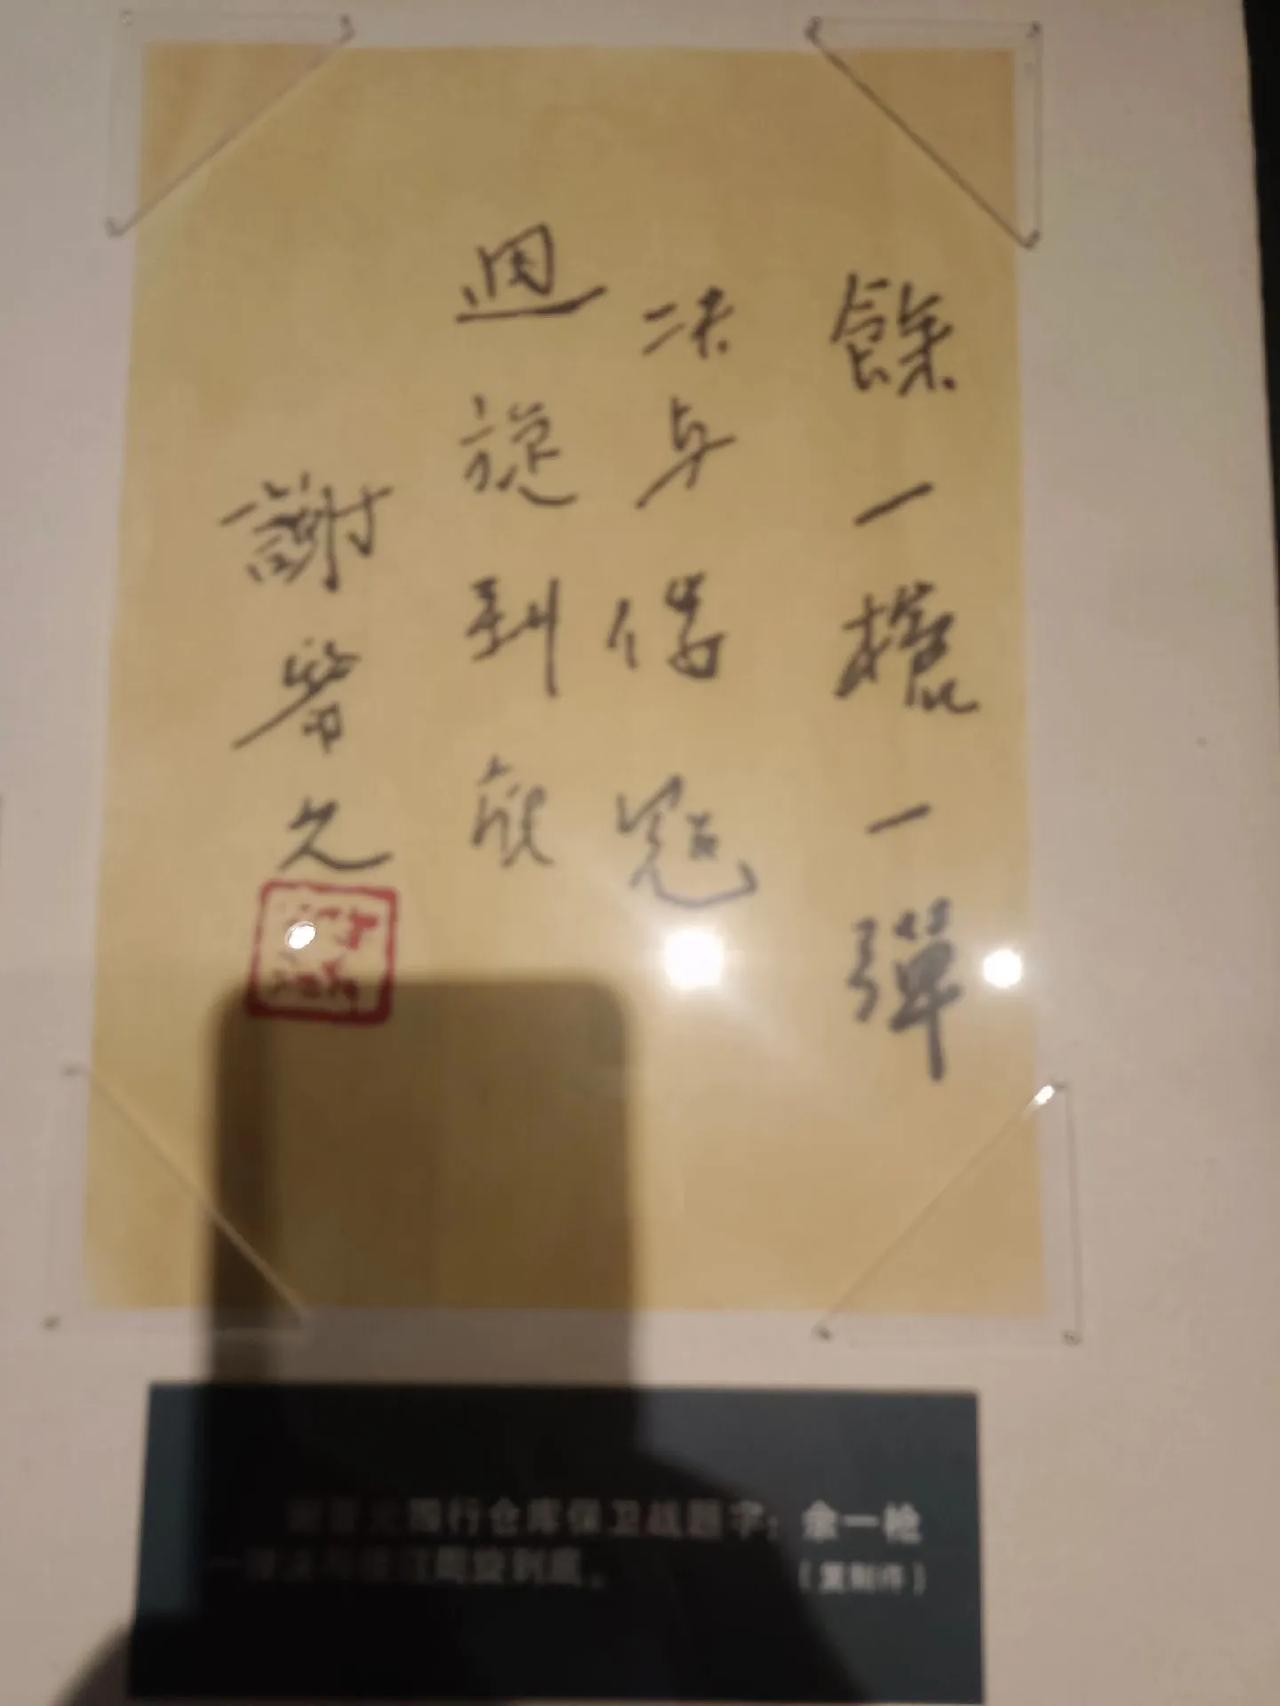 餘一槍一彈
決与倭寇
週旋到底
謝晋元
谢晋元四行仓库保卫战题字：余一枪
一弹决与倭寇周旋到底。（复制件）